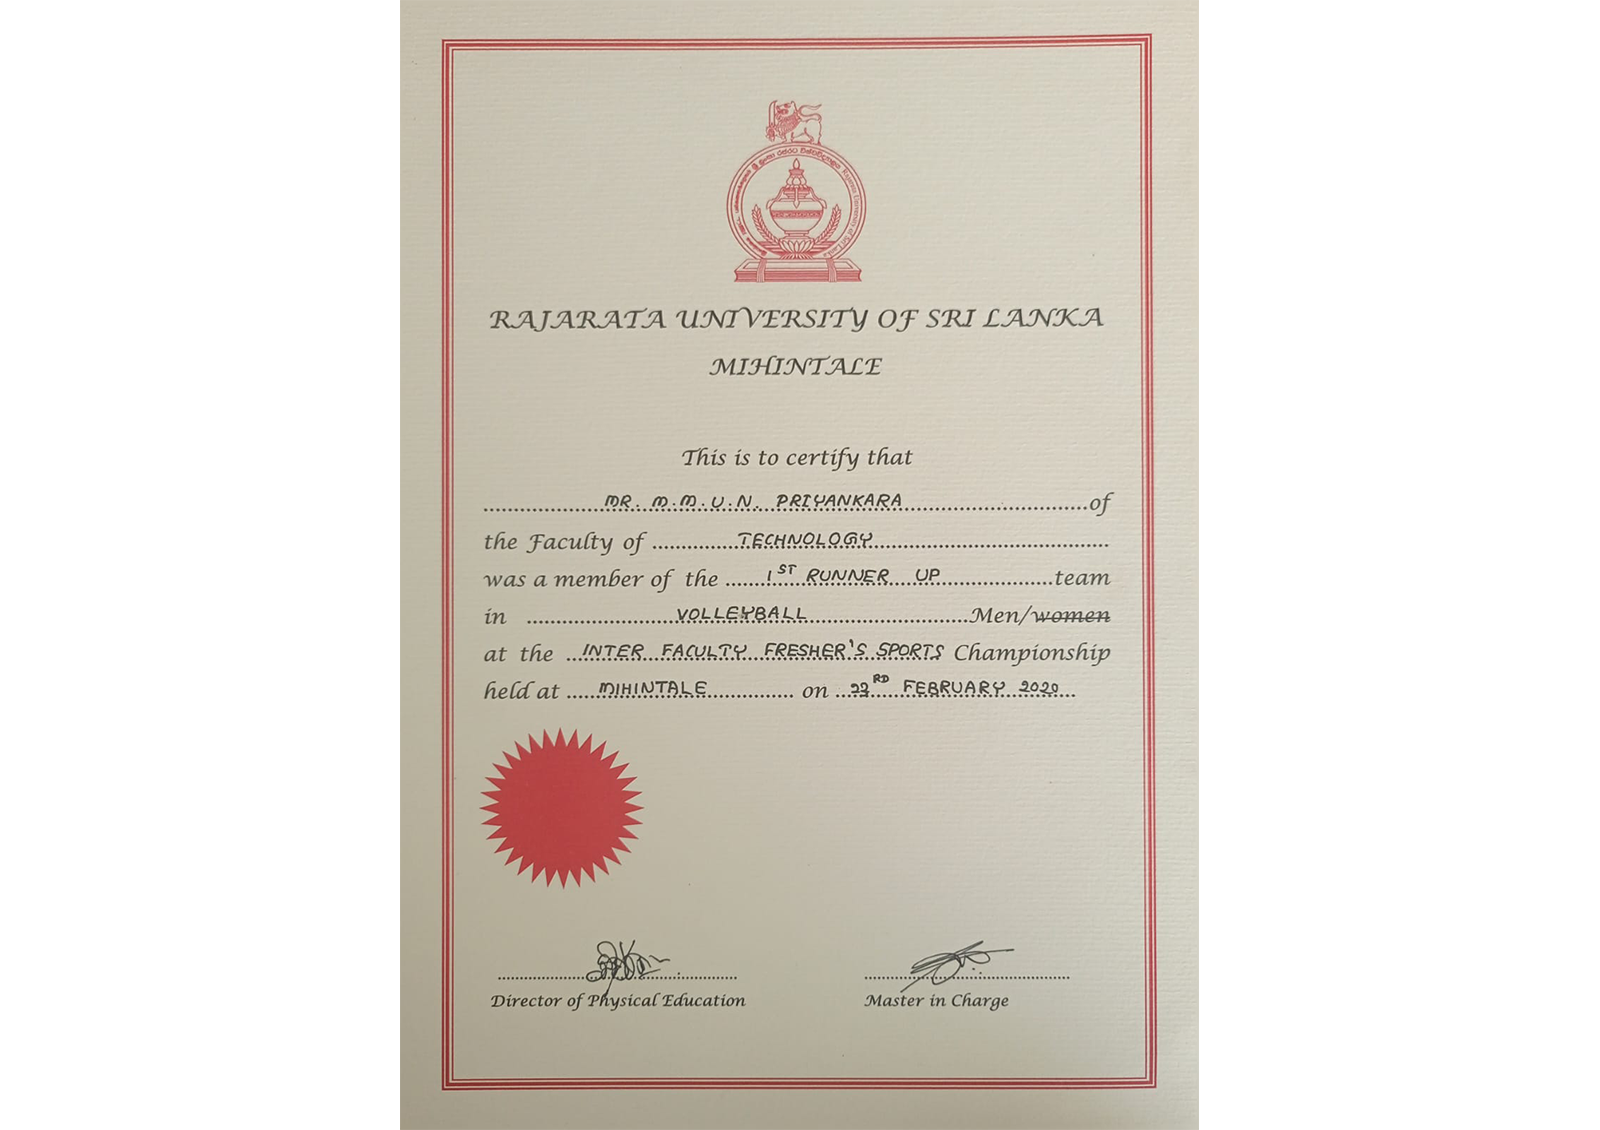 Rajarata University of Sri Lanka
RAJARATA UNIVERSITY OF SRI LANKA
MIHINTALE
This is to certify that
MR. M.M.U.N. PRIYANKARA of
the Faculty of TECHNOLOGY
was a member of the 1ST RUNNER UP team
in VOLLEYBALL Men/women
at the INTER FACULTY FRESHER'S SPORTS Championship
held at MIHINTALE on 23RD FEBRUARY 2020
Director of Physical Education
Master in Charge